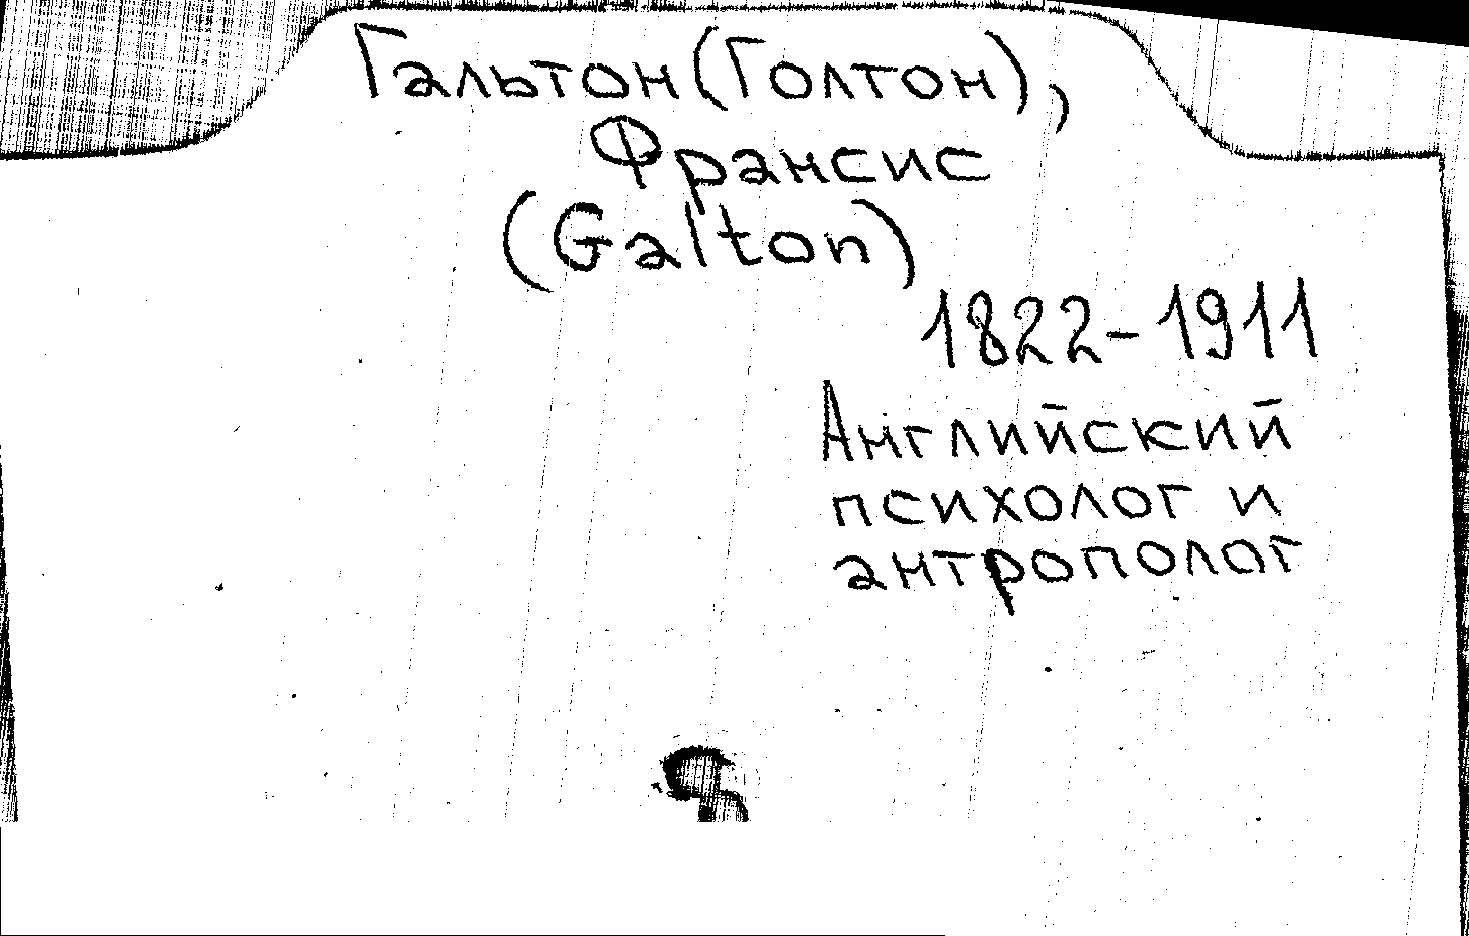 Гальтон (Голтон),
Франсис
(Galton)
1822-1911
Английский
психолог и
антрополог